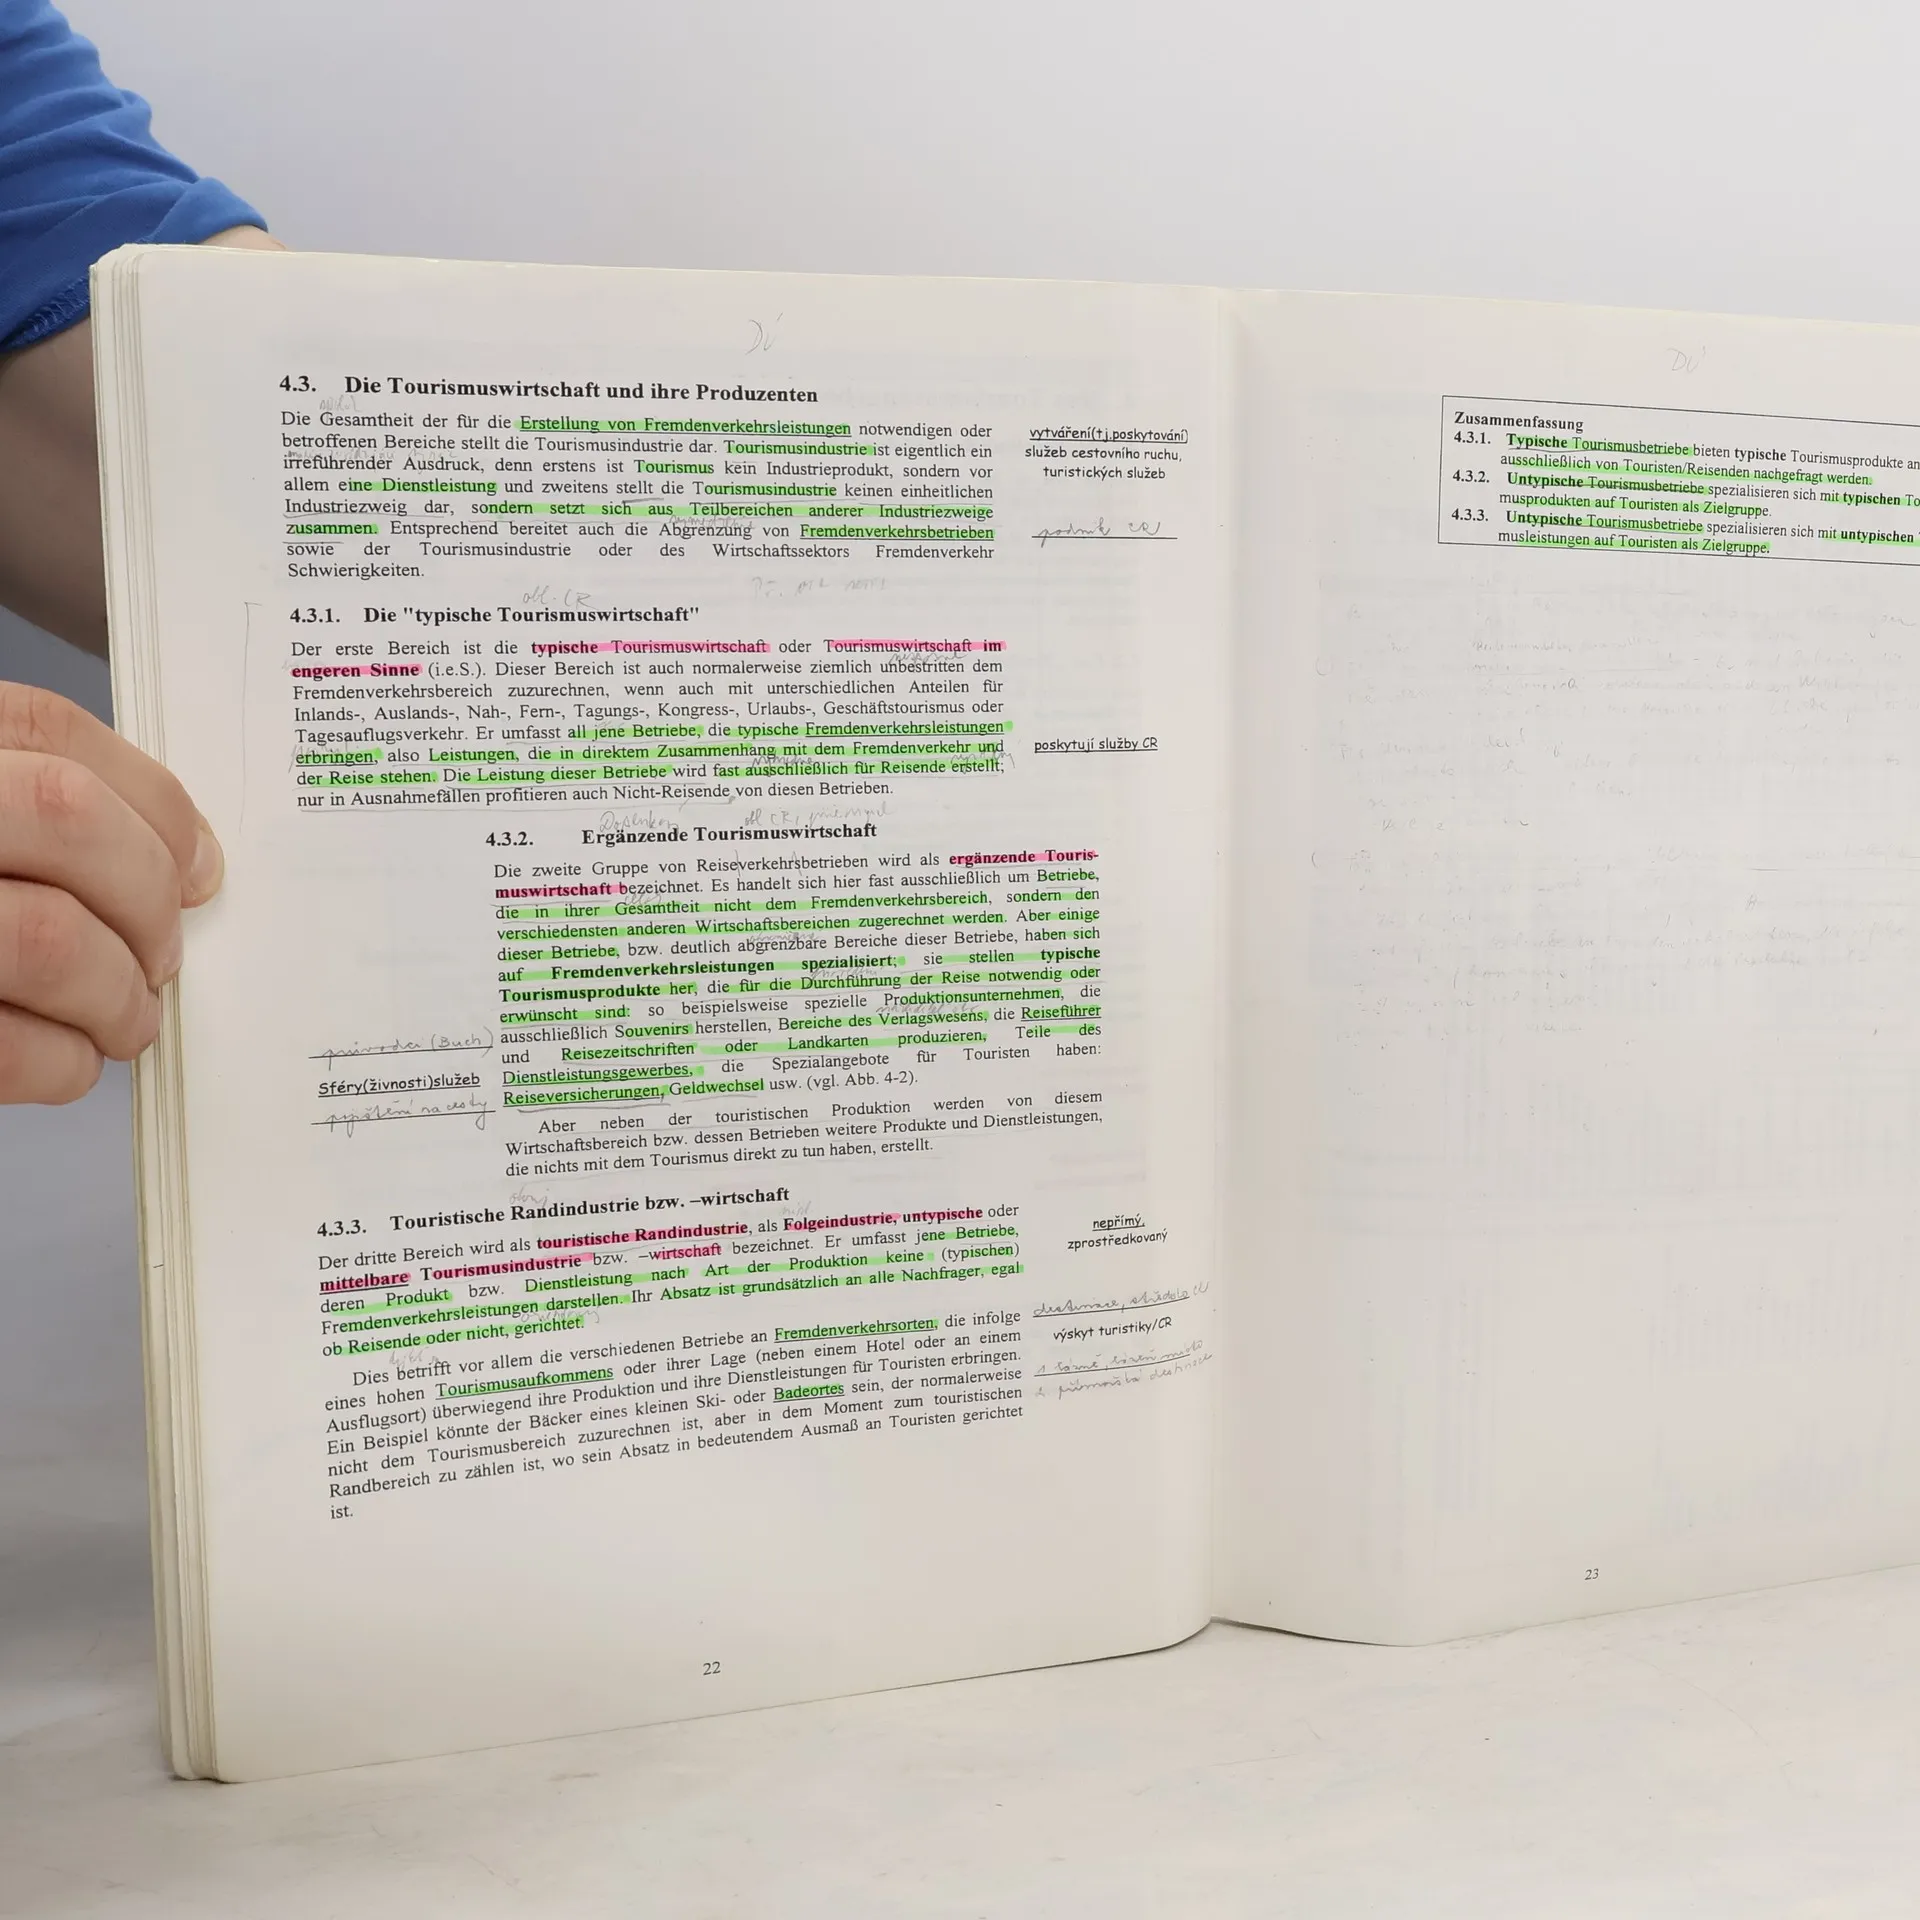 DÚ
4.3. Die Tourismuswirtschaft und ihre Produzenten
Die Gesamtheit der für die Erstellung von Fremdenverkehrsleistungen notwendigen oder
betroffenen Bereiche stellt die Tourismusindustrie dar. Tourismusindustrie ist eigentlich ein
irreführender Ausdruck, denn erstens ist Tourismus kein Industrieprodukt, sondern vor
allem eine Dienstleistung und zweitens stellt die Tourismusindustrie keinen einheitlichen
Industriezweig dar, sondern setzt sich aus Teilbereichen anderer Industriezweige
zusammen. Entsprechend bereitet auch die Abgrenzung von Fremdenverkehrsbetrieben
sowie der Tourismusindustrie oder des Wirtschaftssektors Fremdenverkehr
Schwierigkeiten.
vytváření(tj.poskytování)
služeb cestovního ruchu,
turistických služeb
podnik CR
obl. CR
4.3.1. Die "typische Tourismuswirtschaft"
Der erste Bereich ist die typische Tourismuswirtschaft oder Tourismuswirtschaft im
engeren Sinne (i.e.S.). Dieser Bereich ist auch normalerweise ziemlich unbestritten dem
Fremdenverkehrsbereich zuzurechnen, wenn auch mit unterschiedlichen Anteilen für
Inlands-, Auslands-, Nah-, Fern-, Tagungs-, Kongress-, Urlaubs-, Geschäftstourismus oder
Tagesauflugsverkehr. Er umfasst all jene Betriebe, die typische Fremdenverkehrsleistungen
erbringen, also Leistungen, die in direktem Zusammenhang mit dem Fremdenverkehr und
der Reise stehen. Die Leistung dieser Betriebe wird fast ausschließlich für Reisende erstellt;
nur in Ausnahmefällen profitieren auch Nicht-Reisende von diesen Betrieben.
poskytují služby CR
4.3.2. Ergänzende Tourismuswirtschaft
Die zweite Gruppe von Reiseverkehrsbetrieben wird als ergänzende Touris-
muswirtschaft bezeichnet. Es handelt sich hier fast ausschließlich um Betriebe,
die in ihrer Gesamtheit nicht dem Fremdenverkehrsbereich, sondern den
verschiedensten anderen Wirtschaftsbereichen zugerechnet werden. Aber einige
dieser Betriebe, bzw. deutlich abgrenzbare Bereiche dieser Betriebe, haben sich
auf Fremdenverkehrsleistungen spezialisiert; sie stellen typische
Tourismusprodukte her, die für die Durchführung der Reise notwendig oder
erwünscht sind: so beispielsweise spezielle Produktionsunternehmen, die
ausschließlich Souvenirs herstellen, Bereiche des Verlagswesens, die Reiseführer
und Reisezeitschriften oder Landkarten produzieren, Teile des
Dienstleistungsgewerbes, die Spezialangebote für Touristen haben:
Reiseversicherungen, Geldwechsel usw. (vgl. Abb. 4-2).
průvodci (Buch)
Sféry(živnosti)služeb
pojištění na cesty
Aber neben der touristischen Produktion werden von diesem
Wirtschaftsbereich bzw. dessen Betrieben weitere Produkte und Dienstleistungen,
die nichts mit dem Tourismus direkt zu tun haben, erstellt.
4.3.3. Touristische Randindustrie bzw. –wirtschaft
Der dritte Bereich wird als touristische Randindustrie, als Folgeindustrie, untypische oder
mittelbare Tourismusindustrie bzw. –wirtschaft bezeichnet. Er umfasst jene Betriebe,
deren Produkt bzw. Dienstleistung nach Art der Produktion keine (typischen)
Fremdenverkehrsleistungen darstellen. Ihr Absatz ist grundsätzlich an alle Nachfrager, egal
ob Reisende oder nicht, gerichtet.
nepřímý,
zprostředkovaný
Dies betrifft vor allem die verschiedenen Betriebe an Fremdenverkehrsorten, die infolge
eines hohen Tourismusaufkommens oder ihrer Lage (neben einem Hotel oder an einem
Ausflugsort) überwiegend ihre Produktion und ihre Dienstleistungen für Touristen erbringen.
Ein Beispiel könnte der Bäcker eines kleinen Ski- oder Badeortes sein, der normalerweise
nicht dem Tourismusbereich zuzurechnen ist, aber in dem Moment zum touristischen
Randbereich zu zählen ist, wo sein Absatz in bedeutendem Ausmaß an Touristen gerichtet
ist.
destinace, střediska CR
výskyt turistiky/CR
1 lázně, lázeň. město
2 přímořská destinace
22
DÚ
Zusammenfassung
4.3.1. Typische Tourismusbetriebe bieten typische Tourismusprodukte an
ausschließlich von Touristen/Reisenden nachgefragt werden.
4.3.2. Untypische Tourismusbetriebe spezialisieren sich mit typischen To
musprodukten auf Touristen als Zielgruppe.
4.3.3. Untypische Tourismusbetriebe spezialisieren sich mit untypischen
musleistungen auf Touristen als Zielgruppe.
23